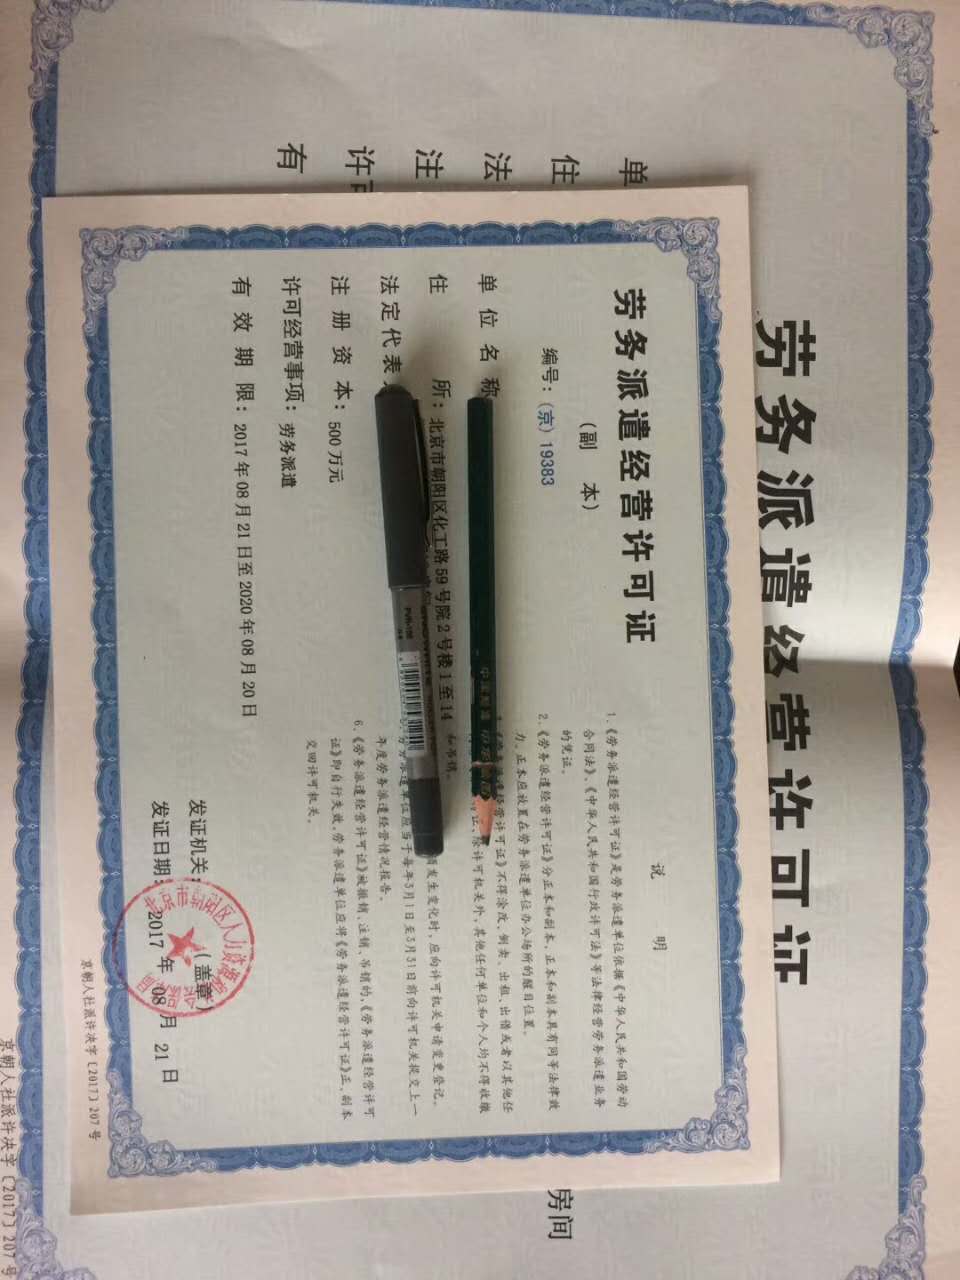 劳务派遣经营许可证
(副 本)
编号：(京) 19383
单 位 名 称
住 所：北京市朝阳区化工路59号院2号楼1至14
法定代表
注 册 资 本：500 万元
许可经营事项：劳务派遣
有 效 期 限：2017 年 08 月 21 日至 2020 年 08 月 20 日
说 明
1.《劳务派遣经营许可证》是劳务派遣单位依据《中华人民共和国劳动
合同法》、《中华人民共和国行政许可法》等法律经营劳务派遣业务
的凭证。
2.《劳务派遣经营许可证》分正本和副本，正本和副本具有同等法律效
力。正本应放置在劳务派遣单位办公场所的醒目位置。
经营许可证》不得涂改、倒卖、出租、出借或者以其他任
除许可机关外，其他任何单位和个人均不得收缴
和吊销。
发生变化时，应向许可机关申请变更登记。
劳务派遣单位应当于每年3月1日至3月31日前向许可机关提交上一
年度劳务派遣经营情况报告。
6.《劳务派遣经营许可证》被撤销、注销、吊销的，《劳务派遣经营许可
证》即自行失效。劳务派遣单位应将《劳务派遣经营许可证》正、副本
交回许可机关。
发证机关：（盖章）
发证日期：2017 年 08 月 21 日
京朝人社派许决字〔2017〕207 号
劳务派遣经营许可证
单
住
法
注
许可
有
房间
京朝人社派许决字〔2017〕207 号
PVR-155